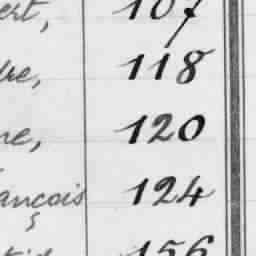 ert, 107
bre, 118
ne, 120
ançois 124
156